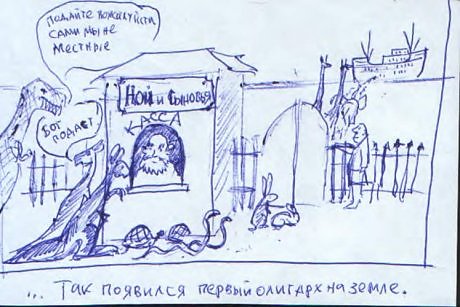 ПОДАЙТЕ ПОЖАЛУЙСТА
САМИ МЫ НЕ
МЕСТНЫЕ
БОГ
ПОДАСТ
НОЙ И СЫНОВЬЯ
КАССА
... Так появился первый олигарх на земле.